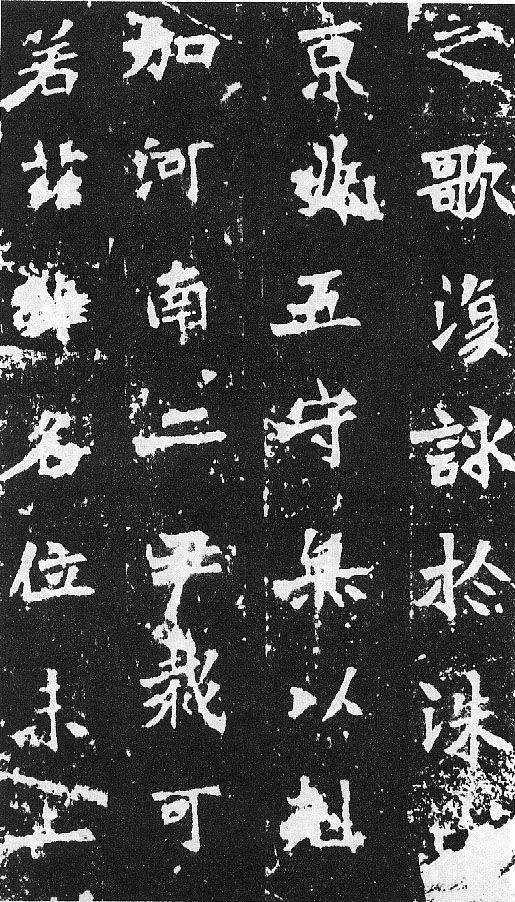 之歌復詠於洙
京兆五守無以剋
加河南二尹裁可
若茲雖名位未上